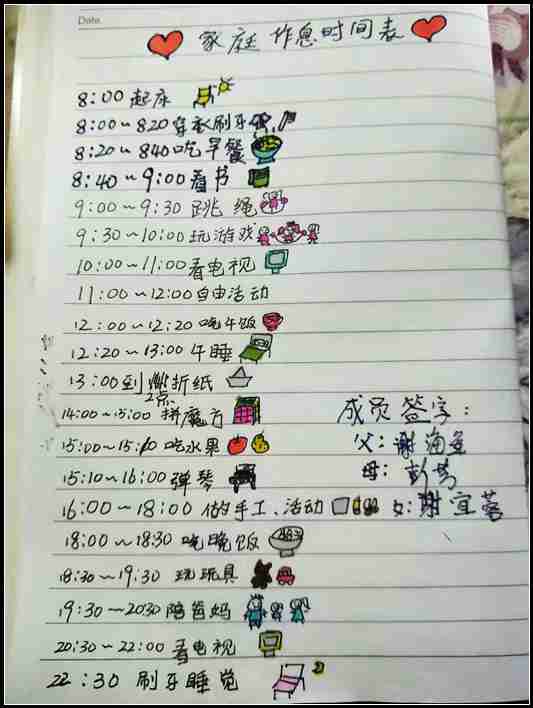 Date.
家庭作息时间表
8:00起床
8:00~820穿衣刷牙
8:20~840吃早餐
8:40~9:00看书
9:00~9:30跳绳
9:30~10:00玩游戏
10:00~11:00看电视
11:00~12:00自由活动
12:00~12:20吃午饭
12:20~13:00午睡
13:00到2点折纸
14:00~15:00拼魔方
15:00~15:10吃水果
15:10~16:00弹琴
16:00~18:00做手工、活动
18:00~18:30吃晚饭
18:30~19:30玩玩具
19:30~2030陪爸妈
20:30~22:00看电视
22:30刷牙睡觉
成员签字:
父:谢海
母:彭芳
女:谢宜蓉